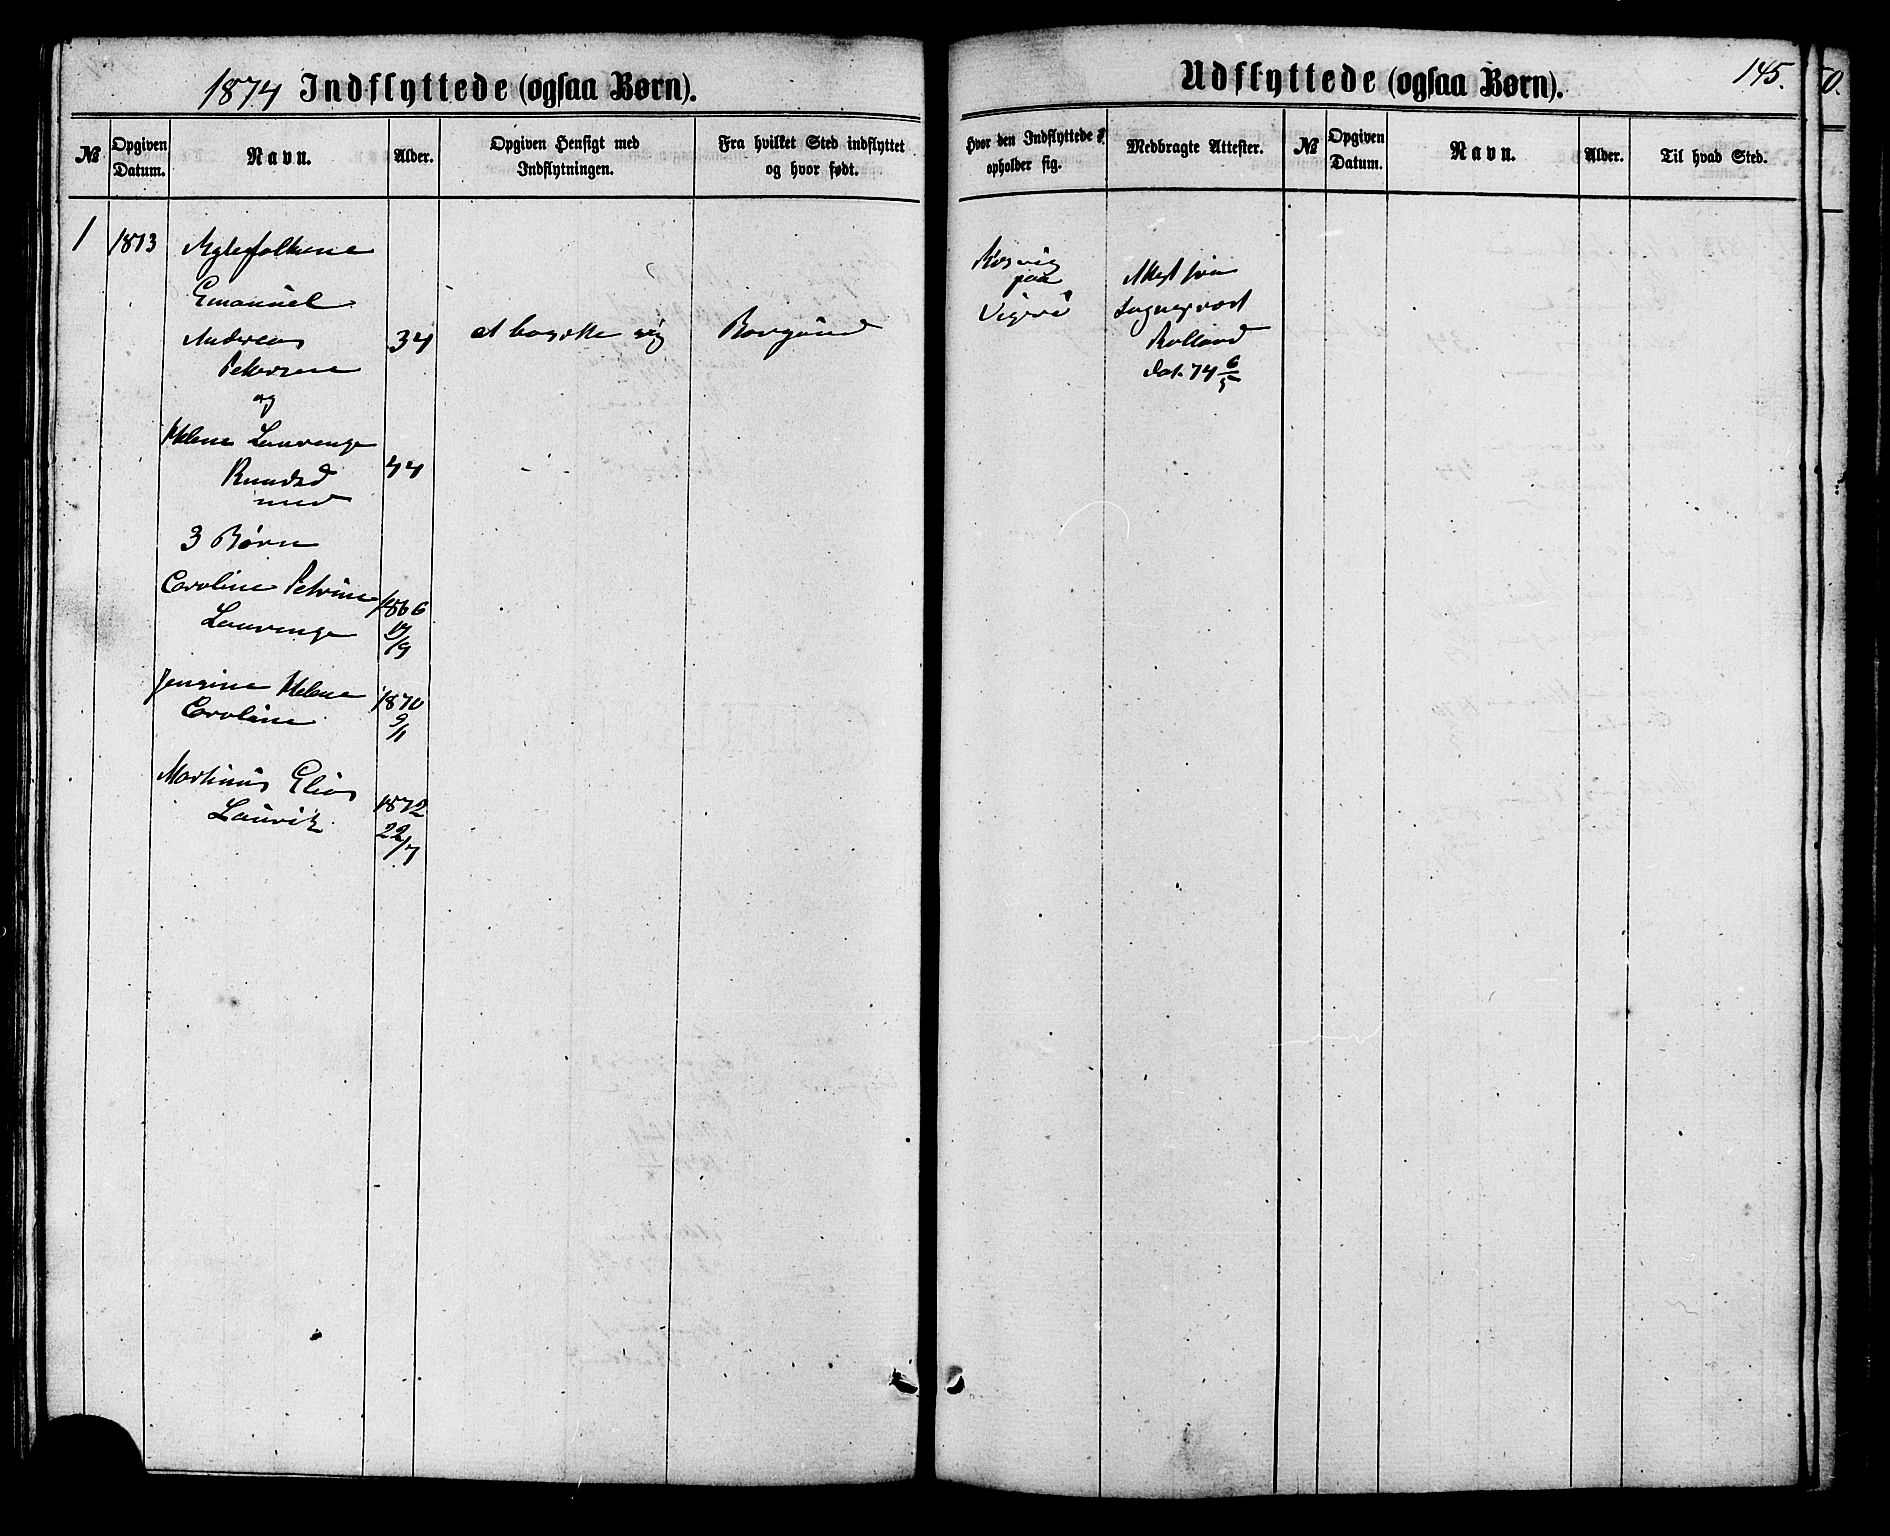 1874 Indflyttede (ogsaa Børn).
№
Opgiven Datum.
Navn.
Alder.
Opgiven Hensigt med Indflytningen.
Fra hvilket Sted indflyttet og hvor født.
1 1873
Emanuel
Andreas 34 at bosætte sig Borgund
Petersen
og
Helene Laurenze
Knudsd 44
med
3 Børn
Caroline Petrine 1866
Laurenze 19/9
Jensine Helene 1870
Caroline 9/1
Martinus Elias 1872
Laurik 22/7
Udflyttede (ogsaa Børn).
145.
Hvor den Indflyttede opholder sig.
Medbragte Attester.
№
Opgiven Datum.
Navn.
Alder.
Til hvad Sted.
paa Attest fra
Vigrø Sogneprest
Rolland
dat. 74 6/5
0.